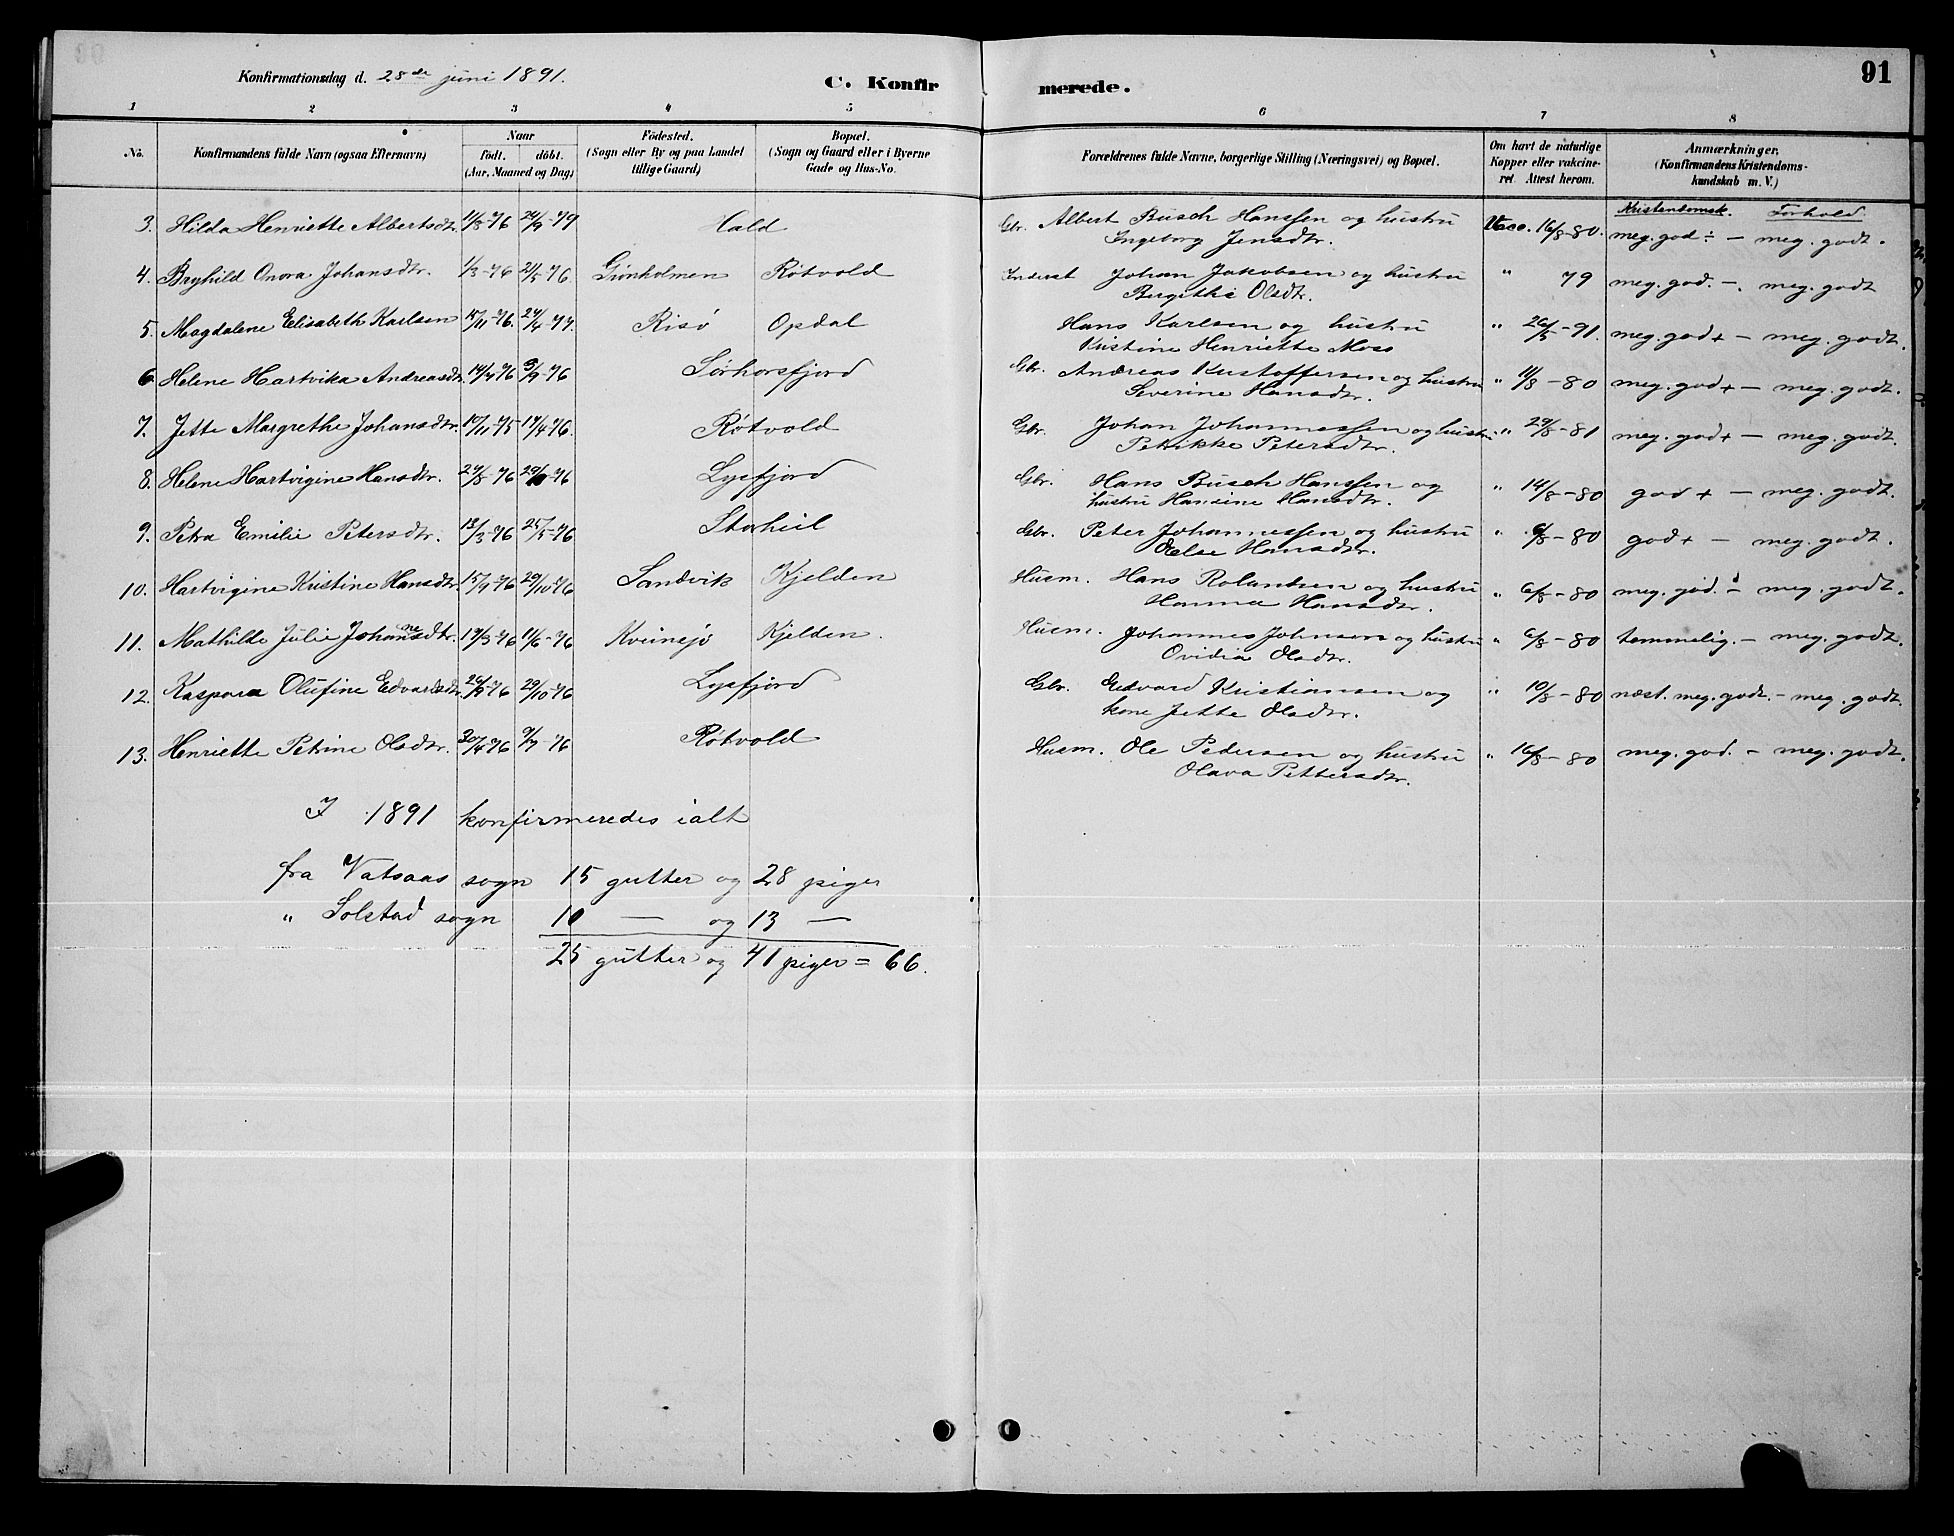 91
Konfirmationsdag d. 28de juni 1891.
C. Konfir merede.
1 2 3 4 5 6 7 8
No.
Konfirmandens fulde Navn (ogsaa Efternavn)
Naar
født. døbt.
(Aar, Maaned og Dag)
Fødested.
(Sogn eller By og paa Landet
tillige Gaard)
Bopæl.
(Sogn og Gaard eller i Byerne
Gade og Hus-No.
Forældrenes fulde Navne, borgerlige Stilling (Næringsvei) og Bopæl.
Om havt de naturlige
Kopper eller vakcine-
ret. Attest herom.
Anmærkninger,
(Konfirmandens Kristendoms-
kundskab m. V.)
Kristendomsk. Forhold
3. Hilda Henriette Albertsdtr. 11/3-76 24/9-79 Hald Gbr. Albert Busch Hanssen og hustru Vacc. 16/8-80. meg. god ÷ - meg. godt.
Ingeborg Jensdtr.
4. Bryhild Onora Johansdtr. 1/3-76 21/5-76. Grønholmen Røtvold Inderst Johan Jakobsen og hustru " 79 meg. god. -. meg. godt
Birgithe Olsdtr.
5. Magdalene Elisabeth Karlsen 15/11-76. 24/4-77. Risø Opdal Hans Karlsen og hustru " 26/5-91. meg. god + - meg. godt.
Kristine Henriette Moss
6. Helene Hartvika Andreasdtr. 14/4-76 3/9-76 Sørhorsfjord Gbr. Andreas Kristoffersen og hustru " 14/8-80 meg. god + - meg. godt.
Severine Hansdtr.
7. Jette Margrethe Johansdtr. 10/11-75 17/4-76. Røtvold Gbr. Johan Johannessen og hustru " 29/8-81 meg. god + - meg. godt.
Petrikke Petersdtr.
8. Helene Hartvigine Hansdtr. 24/8-76 29/10-76 Lysfjord Gbr. Hans Busch Hanssen og " 14/8-80 god + - meg. godt.
hustru Hansine Hansdtr.
9. Petra Emilie Petersdtr. 13/3-76 25/5-76 Storheil Gbr. Peter Johannessen og hustru " 6/8-80 god + - meg. godt.
Else Hansdtr.
10. Hartvigine Kristine Hansdtr. 15/9-76 29/10-76 Sandvik Kjelden Husm. Hans Rolantsen og hustru " 6/8-80 meg. god. - meg. godt.
Hanna Hansdtr.
11. Mathilde Julie Johannesdtr. 19/3-76 11/6-76 Kveinsjø Kjelden. Husm. Johannes Johnsen og hustru " 6/8-80 temmelig. - meg. godt.
Ovidia Olsdtr.
12. Kaspara Olufine Edvardsdtr. 24/9-76 29/10-76 Lysfjord Gbr. Edvard Kristiansen og " 10/8-80 næst. meg. godt. - meg. godt.
kone Jette Olsdtr.
13. Henriette Petrine Olsdtr. 30/4-76 9/7-76 Røtvold Husm. Ole Pedersen og hustru " 16/8-80 meg. god. - meg. godt.
Olava Pettersdtr.
I 1891 konfirmeredes ialt
fra Vatsaas sogn 15 gutter og 28 piger
" Solstad sogn 10 — og 13 —
25 gutter og 41 piger = 66.